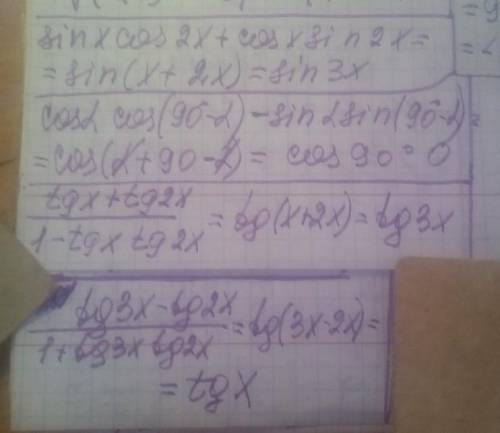 sin x cos 2x + cos x sin 2x =
= sin(x + 2x) = sin 3x
cos α cos(90°-α) - sin α sin(90°-α) =
= cos(α + 90 - α) = cos 90° = 0
tg x + tg 2x
1 - tg x tg 2x
= tg(x+2x) = tg 3x
tg 3x - tg 2x
1 + tg 3x tg 2x
= tg(3x-2x) =
= tg x